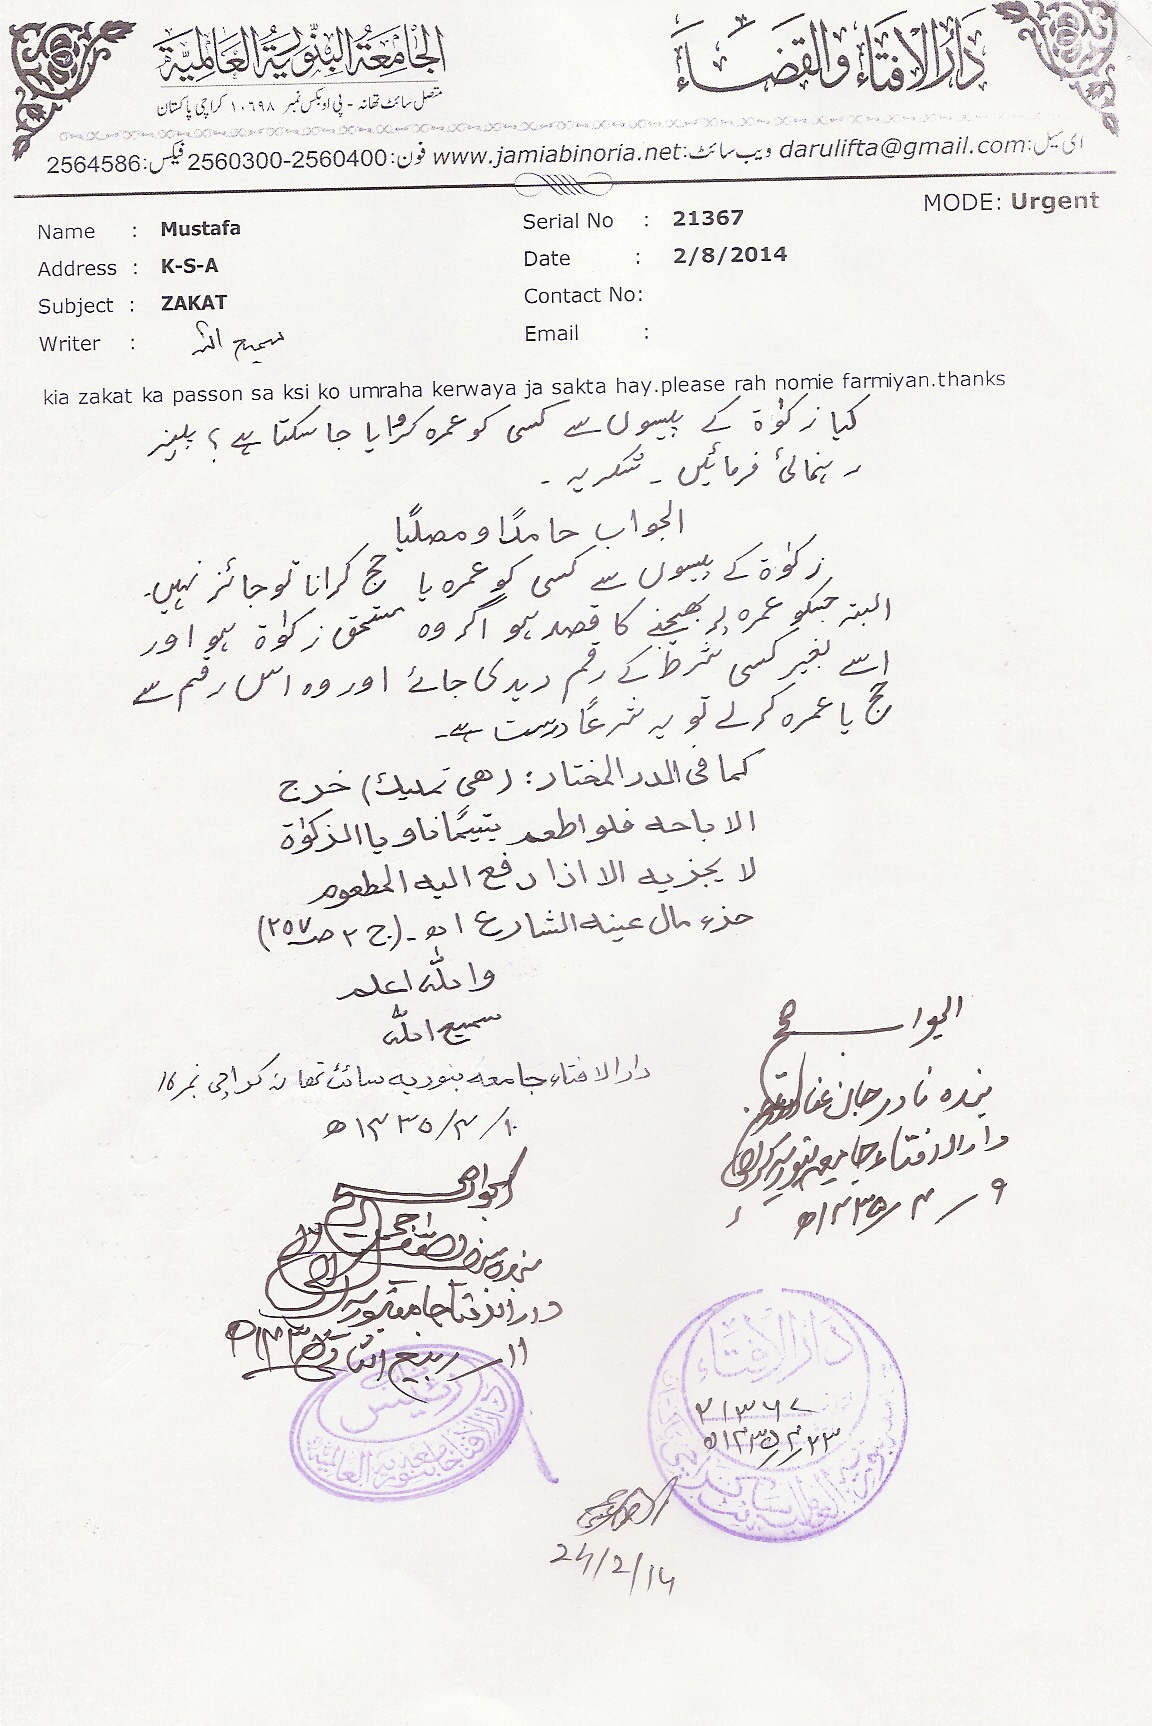 الجامعۃ البنوریۃ العالمیۃ
دار الافتاء والقضاء
متصل سائٹ تھانہ - پی او بکس نمبر ۱۰۶۹۸ کراچی پاکستان
ای میل:darulifta@gmail.com ویب سائٹ:www.jamiabinoria.net فون:2560300-2560400 فیکس:2564586
MODE: Urgent
Name : Mustafa
Serial No : 21367
Address : K-S-A
Date : 2/8/2014
Subject : ZAKAT
Contact No:
Writer : سمیع اللہ
Email :
kia zakat ka passon sa ksi ko umraha kerwaya ja sakta hay.please rah nomie farmiyan.thanks
کیا زکوٰۃ کے پیسوں سے کسی کو عمرہ کروایا جا سکتا ہے؟ پلیز
رہنمائی فرمائیں ۔ شکریہ ۔
الجواب حامدًا و مصلیًا
زکوٰۃ کے پیسوں سے کسی کو عمرہ یا حج کرانا تو جائز نہیں۔
البتہ جسکو عمرہ پر بھیجنے کا قصد ہو اگر وہ مستحق زکوٰۃ ہو اور
اسے بغیر کسی شرط کے رقم دیدی جائے اور وہ اس رقم سے
حج یا عمرہ کرلے تو یہ شرعًا درست ہے۔
کما فی الدر المختار: (ھی تملیک) خرج
الاباحہ فلو اطعم یتیمًا ناویا الزکوٰۃ
لا یجزیہ الا اذا دفع الیہ المطعوم
جزء مال عینہ الشارع اھ ۔ (ج ۲ صـ ۲۵۷)
واللہ اعلم
سمیع اللہ
دار الافتاء جامعہ بنوریہ سائٹ تھانہ کراچی نمبر ۱۶
۱۰/۴/۱۴۳۵ھ
الجواب صحیح
بندہ نادر جان
دار الافتاء جامعہ بنوریہ کراچی
۹ / ۴ / ۱۴۳۵ھ
الجواب صحیح
دار الافتاء جامعہ بنوریہ
۱۱ / ربیع الثانی
دار الافتاء
۲۱۳۶۷
۲۳/۴/۱۴۳۵ھ
رئیس
دار الافتاء جامعہ بنوریہ العالمیۃ
24/2/14